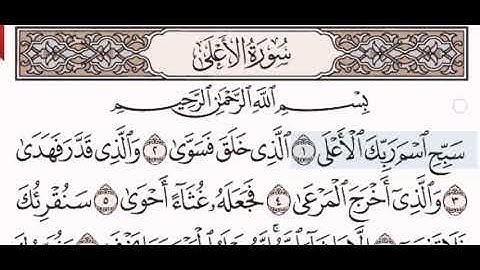 سُورَةُ الأَعْلَىٰ
بِسْمِ اللَّهِ الرَّحْمَٰنِ الرَّحِيمِ
سَبِّحِ ٱسْمَ رَبِّكَ ٱلْأَعْلَى ١ ٱلَّذِى خَلَقَ فَسَوَّىٰ ٢ وَٱلَّذِى قَدَّرَ فَهَدَىٰ
٣ وَٱلَّذِىٓ أَخْرَجَ ٱلْمَرْعَىٰ ٤ فَجَعَلَهُۥ غُثَآءً أَحْوَىٰ ٥ سَنُقْرِئُكَ